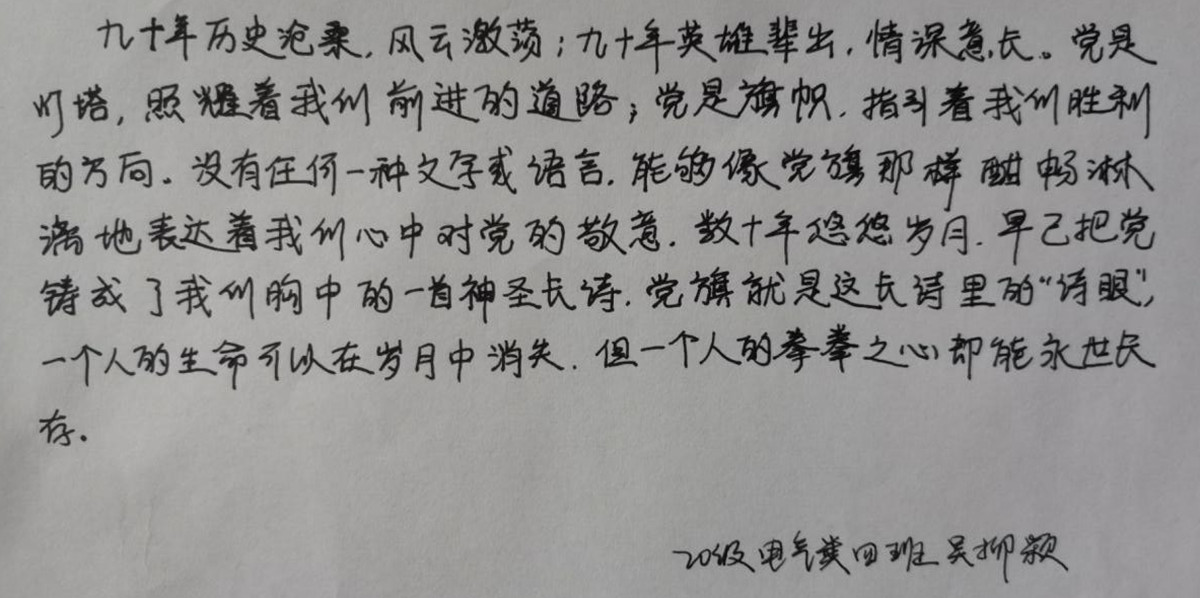 九十年历史沧桑,风云激荡;九十年英雄辈出,情深意长。党是
灯塔,照耀着我们前进的道路;党是旗帜,指引着我们胜利
的方向。没有任何一种文字或语言,能够像党旗那样酣畅淋
漓地表达着我们心中对党的敬意.数十年悠悠岁月.早已把党
铸成了我们胸中的一首神圣长诗.党旗就是这长诗里的“诗眼”,
一个人的生命可以在岁月中消失.但一个人的拳拳之心却能永世长
存.
20级电气类四班吴柳颖